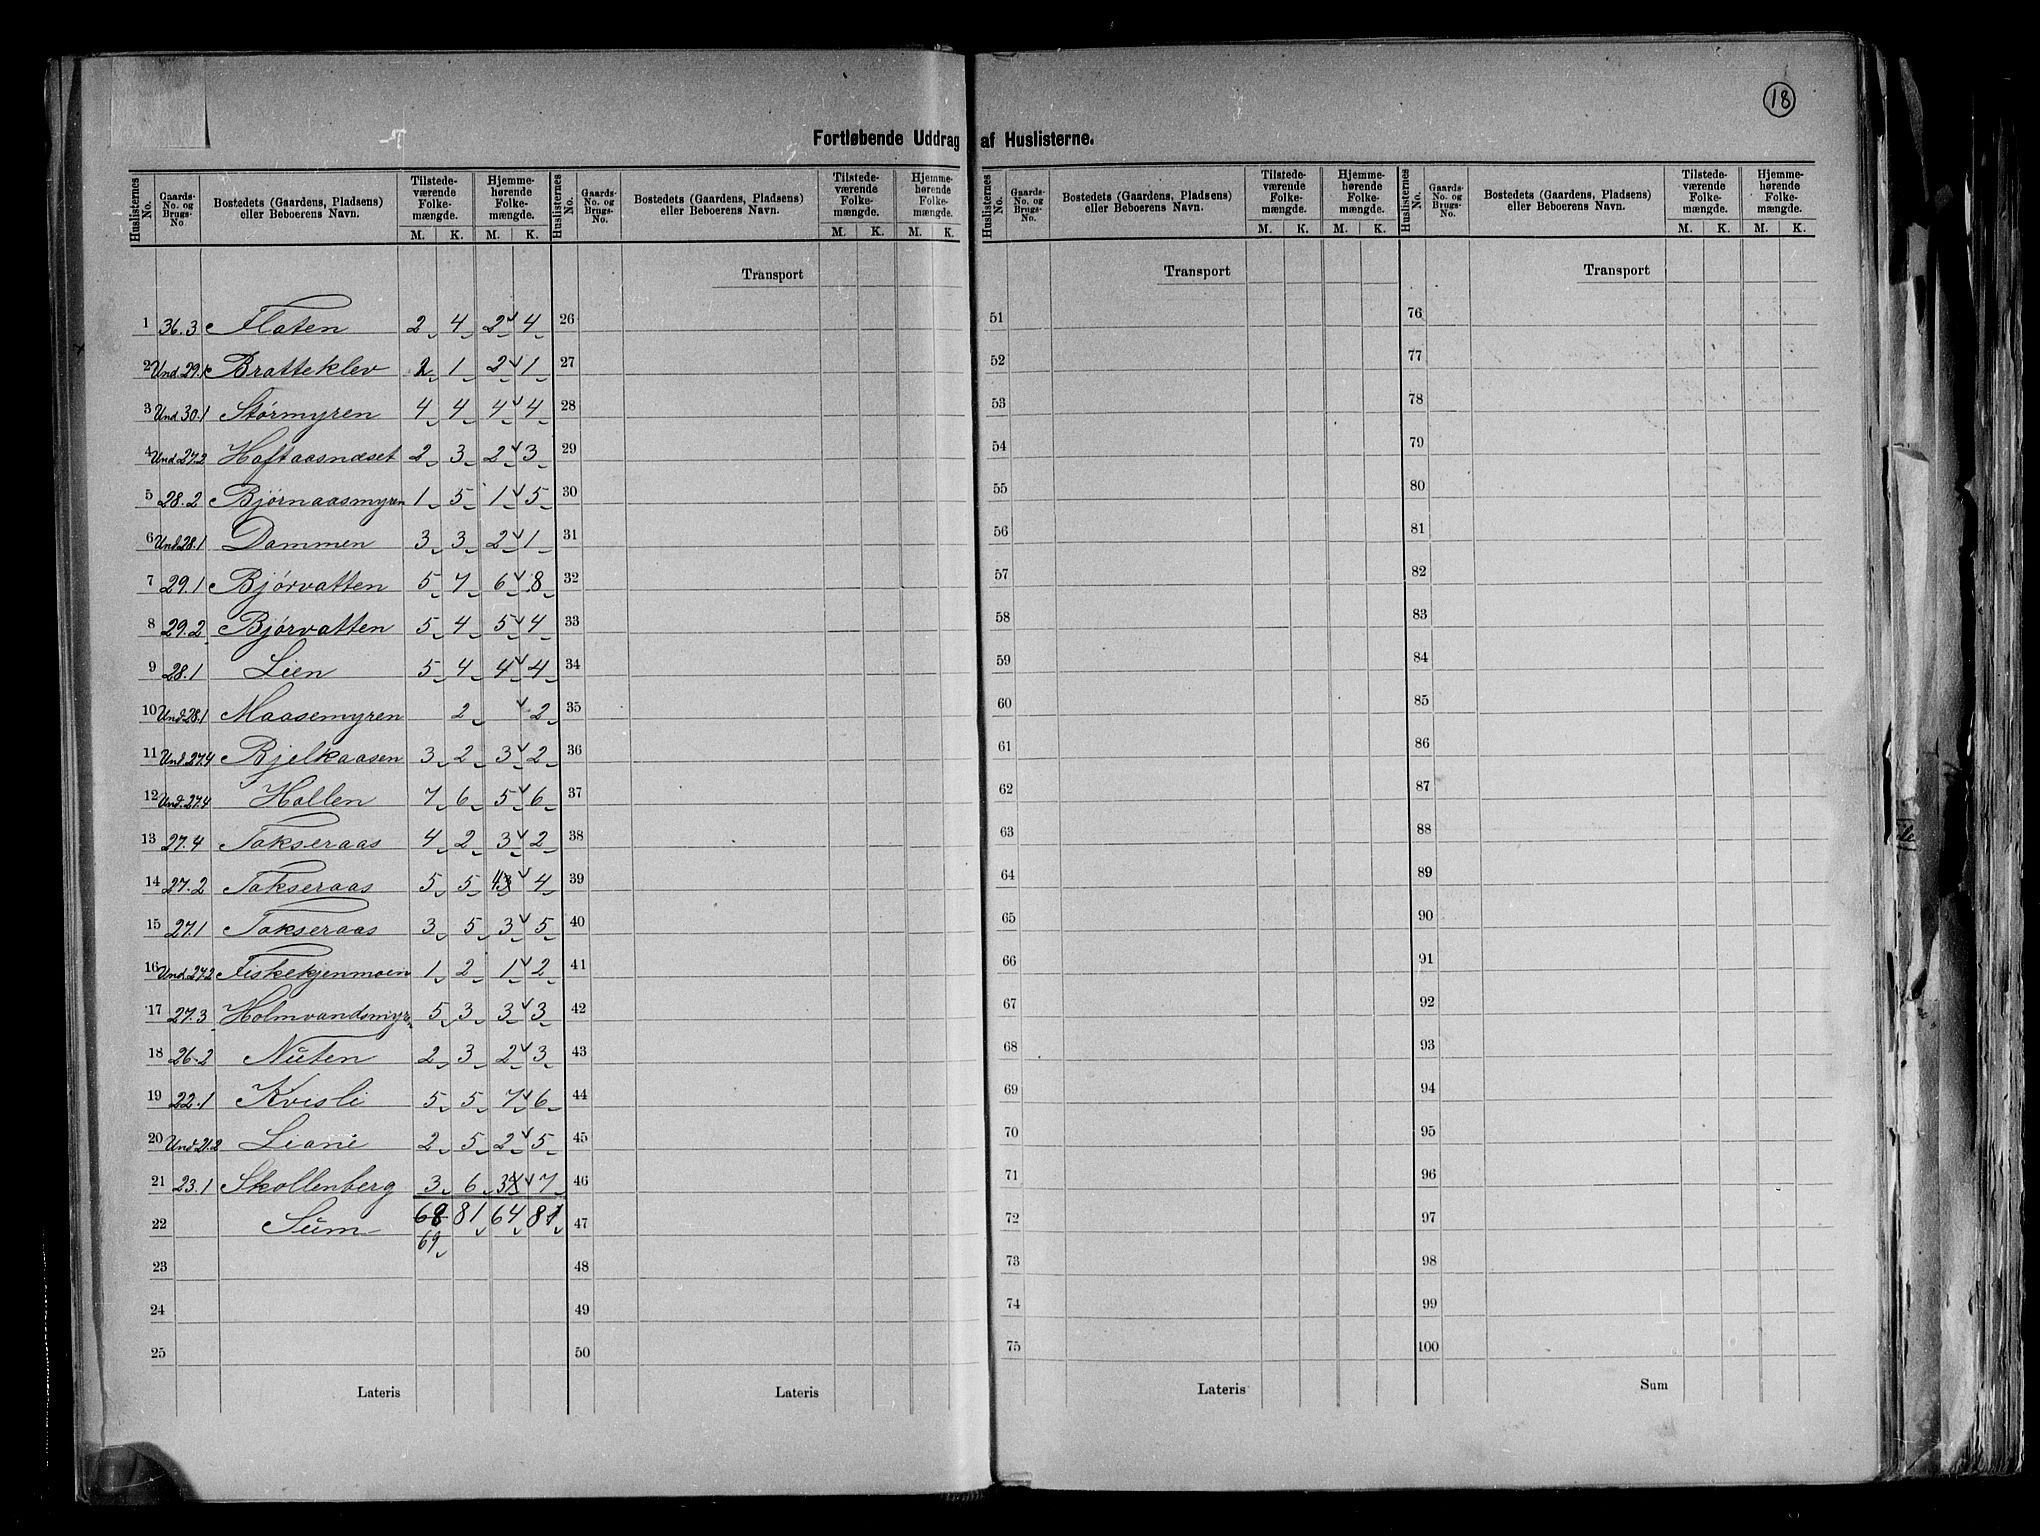 18
Fortløbende Uddrag af Huslisterne.
Huslisternes No. Gaards-No. og Brugs-No Bostedets (Gaardens, Pladsens) eller Beboerens Navn. Tilstedeværende Folkemængde. M. K. Hjemmehørende Folkemængde. M. K.
Huslisternes No. Gaards-No. og Brugs-No. Bostedets (Gaardens, Pladsens) eller Beboerens Navn. Tilstedeværende Folkemængde. M. K. Hjemmehørende Folkemængde. M. K.
Huslisternes No. Gaards-No. og Brugs-No. Bostedets (Gaardens, Pladsens) eller Beboerens Navn. Tilstedeværende Folkemængde. M. K. Hjemmehørende Folkemængde. M. K.
Huslisternes No. Gaards-No. og Brugs-No. Bostedets (Gaardens, Pladsens) eller Beboerens Navn. Tilstedeværende Folkemængde. M. K. Hjemmehørende Folkemængde. M. K.
Transport Transport Transport
1 36.3 Flaten 2 4 2 4 26 51 76
2 Und 29.1 Bratteklev 2 1 2 1 27 52 77
3 Und 30.1 Størmyren 4 4 4 4 28 53 78
4 Und 27.2 Haftaasnæset 2 3 2 3 29 54 79
5 28.2 Bjørnaasmyren 1 5 1 5 30 55 80
6 Und 28.1 Dammen 3 3 2 1 31 56 81
7 29.1 Bjørvatten 5 7 6 8 32 57 82
8 29.2 Bjørvatten 5 4 5 4 33 58 83
9 28.1 Lien 5 4 4 4 34 59 84
10 Und 28.1 Maasemyren 2 2 35 60 85
11 Und 27.4 Bjelkaasen 3 2 3 2 36 61 86
12 Und. 27.4 Hallen 7 6 5 6 37 62 87
13 27.4 Takseraas 4 2 3 2 38 63 88
14 27.2 Takseraas 5 5 4 4 39 64 89
15 27.1 Takseraas 3 5 3 5 40 65 90
16 Und 27.2 Fiskekjenmoen 1 2 1 2 41 66 91
17 27.3 Holmvandsmyr 5 3 3 3 42 67 92
18 26.2 Nuten 2 3 2 3 43 68 93
19 22.1 Kvisli 5 5 7 6 44 69 94
20 Und 21.2 Liane 2 5 2 5 45 70 95
21 23.1 Skollenberg 3 6 3 7 46 71 96
22 Sum 68 81 64 81 47 72 97
69
23 48 73 98
24 49 74 99
25 50 75 100
Lateris Lateris Lateris Sum